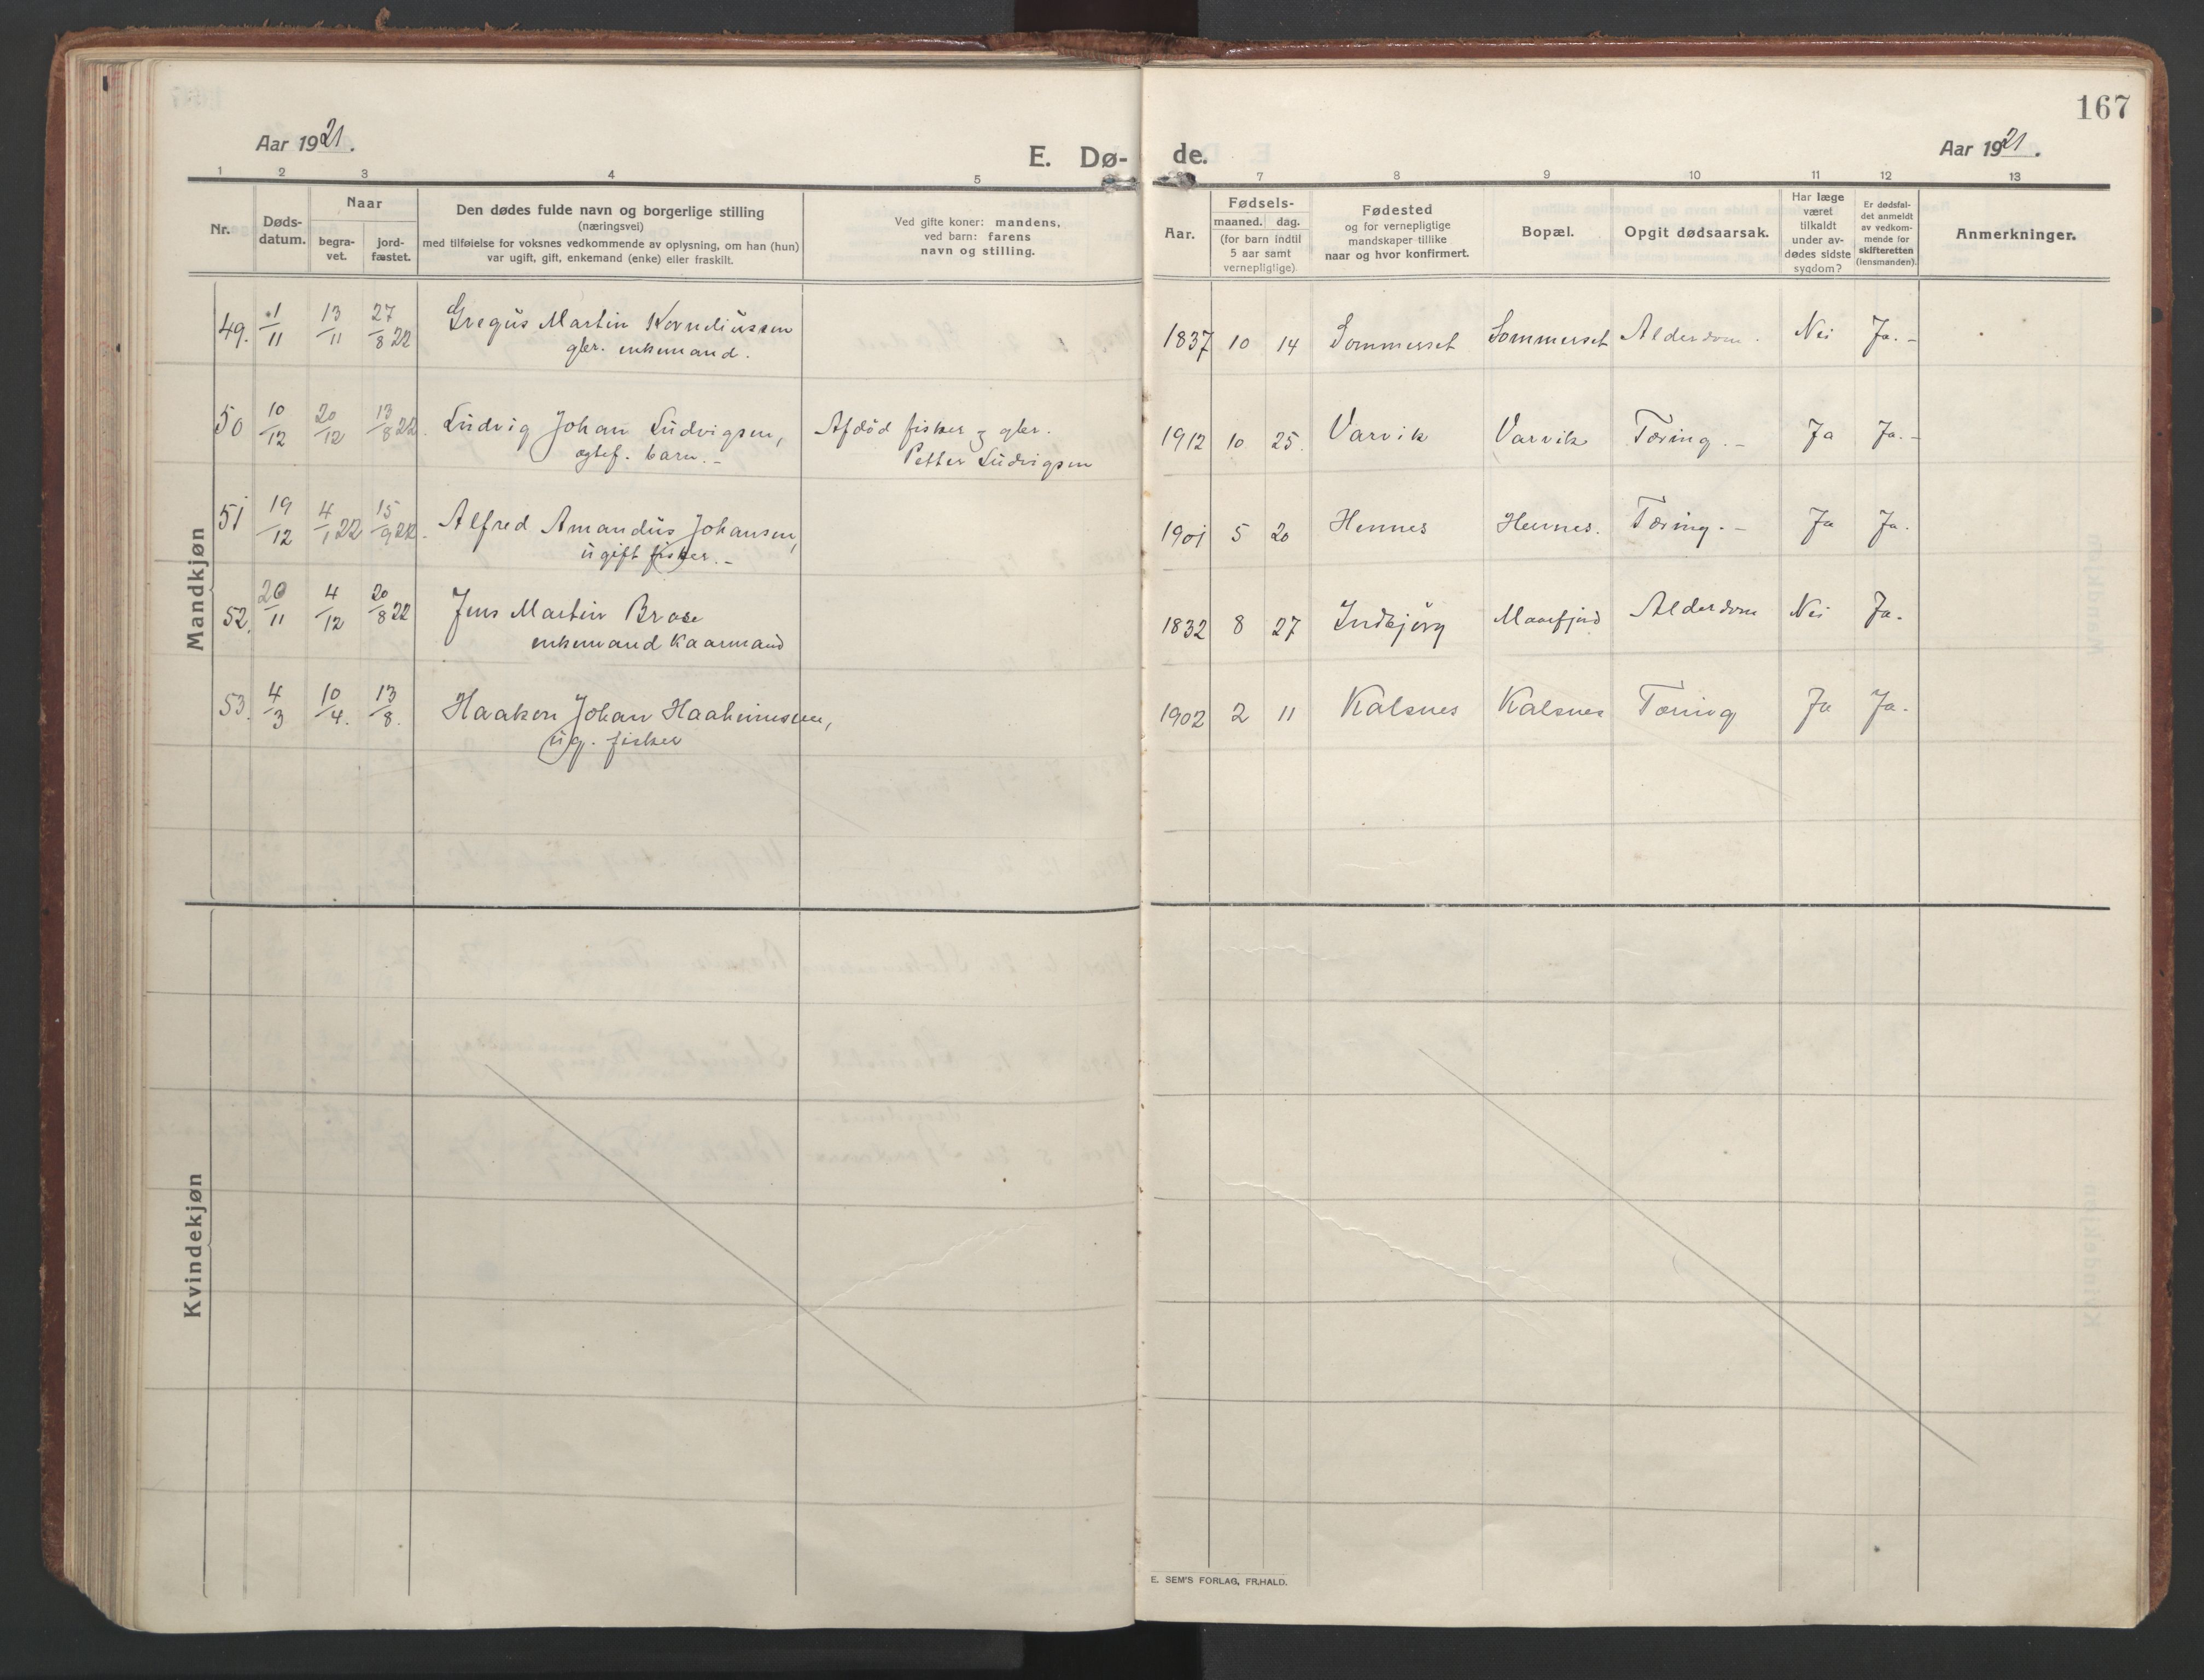 167
Aar 1921.
E. Dø- de.
Aar 1921.
1 2 3 4 5 7 8 9 10 11 12 13
Nr.
Døds-
datum.
Naar
begra-
vet.
jord-
fæstet.
Den dødes fulde navn og borgerlige stilling
(næringsvei)
med tilføielse for voksnes vedkommende av oplysning, om han (hun)
var ugift, gift, enkemand (enke) eller fraskilt.
Ved gifte koner: mandens,
ved barn: farens
navn og stilling.
Aar.
Fødsels-
maaned. dag.
(for barn indtil
5 aar samt
vernepligtige)
Fødested
og for vernepligtige
mandskaper tillike
naar og hvor konfirmert.
Bopæl.
Opgit dødsaarsak.
Har læge
været
tilkaldt
under av-
dødes sidste
sygdom?
Er dødsfal-
det anmeldt
av vedkom-
mende for
skifteretten
(lensmanden).
Anmerkninger.
Mandkjøn
49. 1/11 13/11 27/8 22 Gregus Martin Korneliussen 1837 10 14 Sommerset Sommerset Alderdom. Nei Ja. -
gbr. enkemand.
50 10/12 20/12 13/8 22. Ludvig Johan Ludvigsen, Afdöd fisker og gbr. 1912 10 25. Varvik Varvik Tæring. - Ja Ja. -
ægtef. barn. - Petter Ludvigsen
51 19/12 4/1 22 15/9 22. Alfred Amandus Johansen, 1901 5 20 Hennes Hennes. Tæring. - Ja Ja.
ugift fisker. -
52. 26/11 4/12 20/8 22 Jens Martin Brose 1832 8 27 Indbjörg Alderdom Nei Ja.
enkemand kaarmand
53. 4/3 10/4. 13/8. Haakon Johan 1902 2 11 Kalsnes Kalsnes Tæring Ja Ja.
ug. fisker
Kvindekjøn
E. SEM'S FORLAG, FR.HALD.